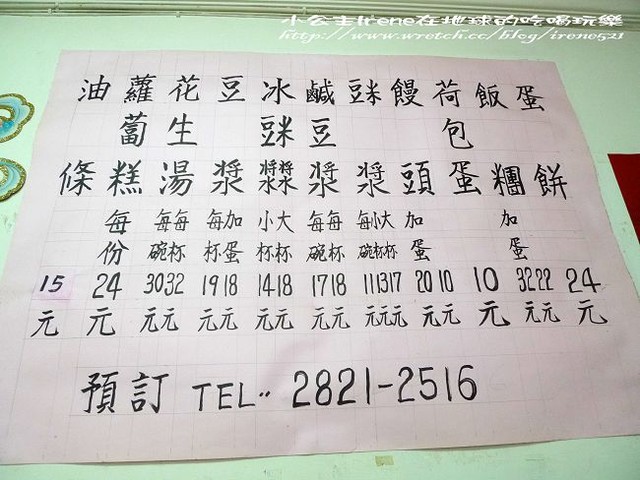 小公主Irene在地球的吃喝玩樂
http://www.wretch.cc/blog/irene521
油 蘿 花 豆 冰 鹹 豆米 饅 荷 飯 蛋
蔔 生 豆米 豆 包
條 糕 湯 漿 漿漿 漿 漿 頭 蛋 糰 餅
每 每每 每加 小大 每每 每小大 加 加
份 碗杯 杯蛋 杯杯 碗杯 碗杯杯 蛋 蛋
15 24 3032 1918 1418 1718 111317 2010 10 3222 24
元 元 元元 元元 元元 元元 元元元 元元 元 元元 元
預訂 TEL.. 2821-2516